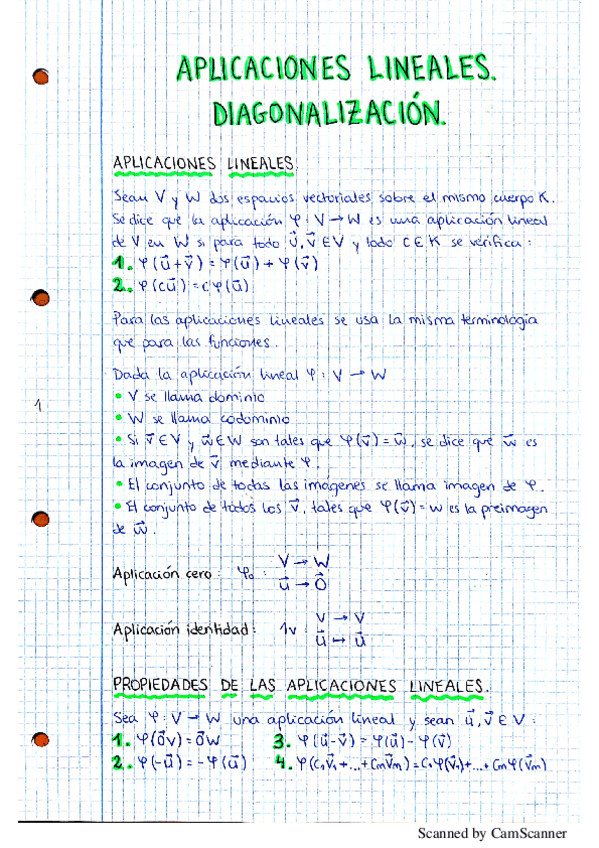 APLICACIONES LINEALES.
DIAGONALIZACIÓN.
APLICACIONES LINEALES
Sean V y W dos espacios vectoriales sobre el mismo cuerpo K.
Se dice que la aplicación φ: V → W es una aplicación lineal
de V en W si para todo u⃗, v⃗ ∈ V y todo c ∈ K se verifica:
1. φ(u⃗+v⃗) = φ(u⃗) + φ(v⃗)
2. φ(cu⃗) = cφ(u⃗)
Para las aplicaciones lineales se usa la misma terminología
que para las funciones.
Dada la aplicación lineal φ: V → W
• V se llama dominio
• W se llama codominio
1
• Si v⃗ ∈ V y w⃗ ∈ W son tales que φ(v⃗) = w⃗, se dice que w⃗ es
la imagen de v⃗ mediante φ.
• El conjunto de todas las imágenes se llama imagen de φ.
• El conjunto de todos los v⃗, tales que φ(v⃗) = w es la preimagen
de w⃗.
Aplicación cero: φ₀: V → W
u⃗ → 0⃗
Aplicación identidad: 1v: V → V
u⃗ ↦ u⃗
PROPIEDADES DE LAS APLICACIONES LINEALES.
Sea φ: V → W una aplicación lineal y sean u⃗, v⃗ ∈ V:
1. φ(0⃗v) = 0⃗w 3. φ(u⃗-v⃗) = φ(u⃗) - φ(v⃗)
2. φ(-u⃗) = -φ(u⃗) 4. φ(c₁v⃗₁+...+cmv⃗m) = c₁φ(v⃗₁)+...+cmφ(v⃗m)
Scanned by CamScanner